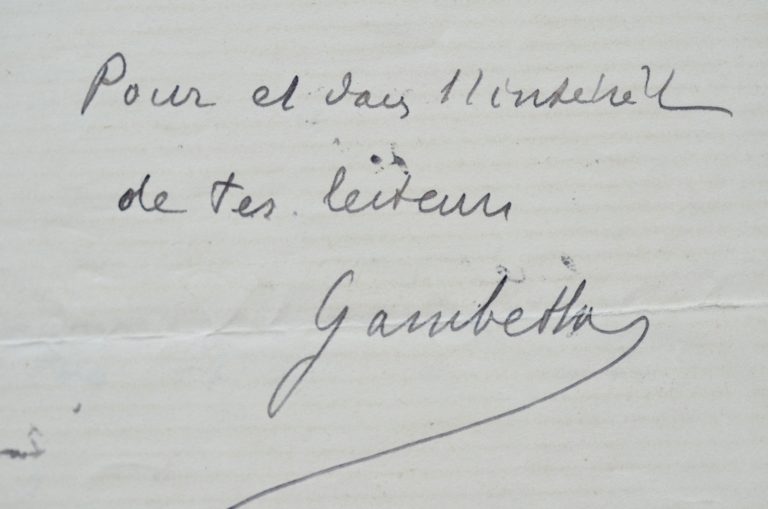 Pour et dans l'intérêt
de tes lecteurs
Gambetta